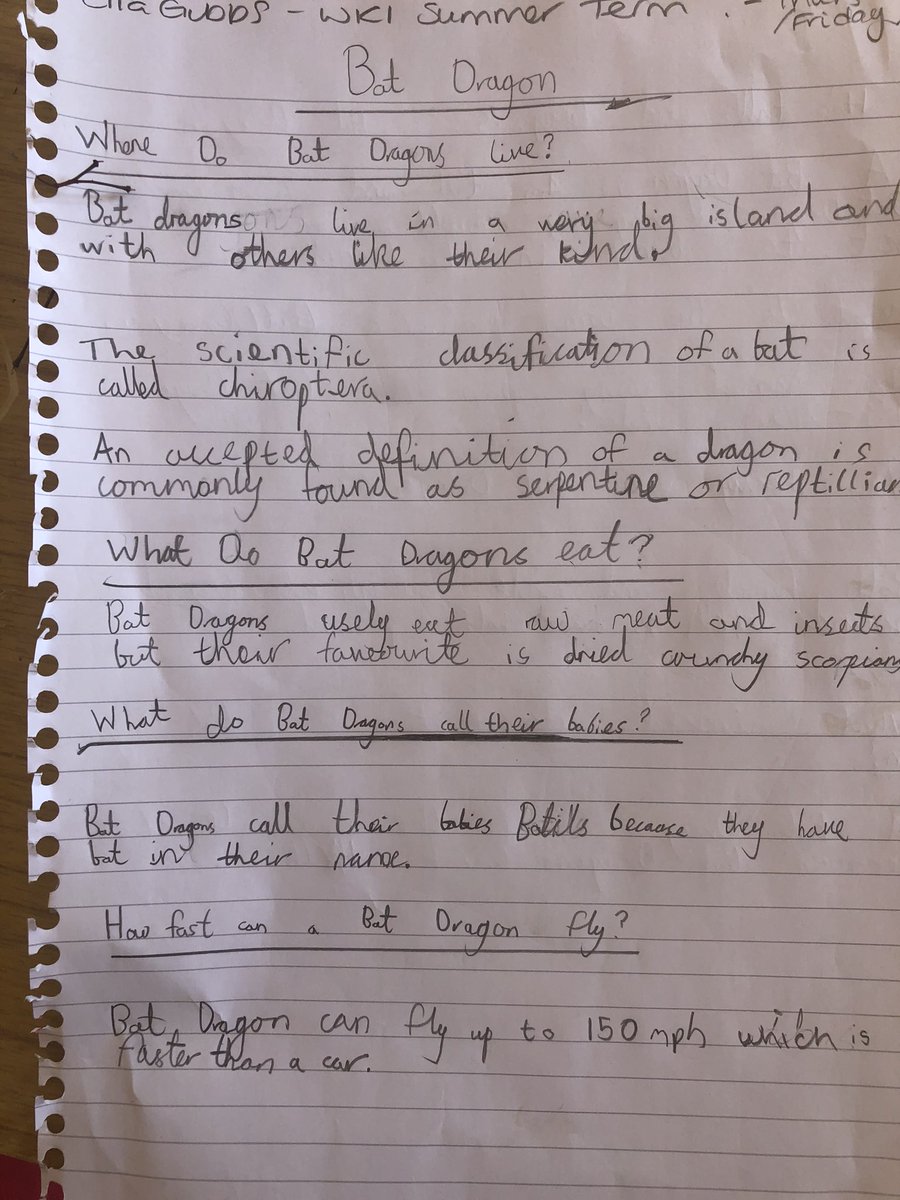 Gubbs - WK1 Summer Term. -
/Friday
Bat Dragon
Where Do Bat Dragons live?
Bat dragons live in a very big island and
with others like their kind.
The scientific classification of a bat is
called chiroptera.
An accepted definition of a dragon is
commonly found as serpentine or reptillian
What Do Bat Dragons eat?
Bat Dragons usely eat raw meat and insects
but their favourite is dried crunchy scorpians
What do Bat Dragons call their babies?
Bat Dragons call their babies Batils because they have
bat in their name.
How fast can a Bat Dragon fly?
Bat Dragon can fly up to 150 mph which is
faster than a car.